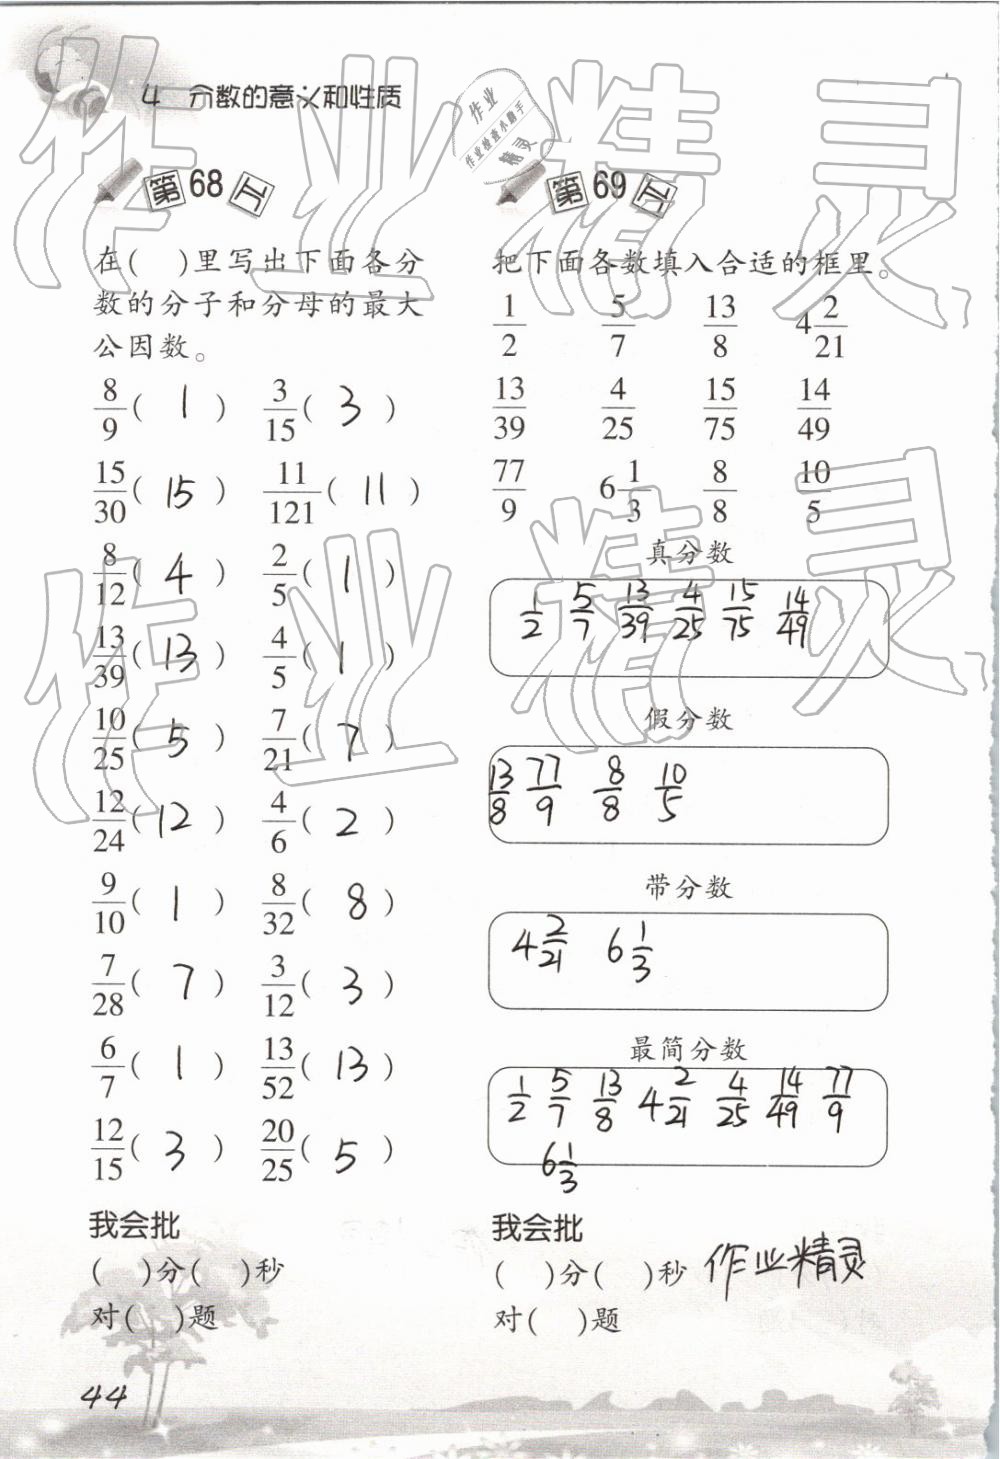 4 分数的意义和性质
作业
作业检查小助手
精灵
第68关
在( )里写出下面各分
数的分子和分母的最大
公因数。
8/9( 1 ) 3/15( 3 )
15/30( 15 ) 11/121( 11 )
8/12( 4 ) 2/5( 1 )
13/39( 13 ) 4/5( 1 )
10/25( 5 ) 7/21( 7 )
12/24( 12 ) 4/6( 2 )
9/10( 1 ) 8/32( 8 )
7/28( 7 ) 3/12( 3 )
6/7( 1 ) 13/52( 13 )
12/15( 3 ) 20/25( 5 )
我会批
( )分( )秒
对( )题
第69关
把下面各数填入合适的框里。
1/2 5/7 13/8 4 2/21
13/39 4/25 15/75 14/49
77/9 6 1/3 8/8 10/5
真分数
1/2 5/7 13/39 4/25 15/75 14/49
假分数
13/8 77/9 8/8 10/5
带分数
4 2/21 6 1/3
最简分数
1/2 5/7 13/8 4 2/21 4/25 14/49 77/9
6 1/3
我会批
( )分( )秒 作业精灵
对( )题
44
作业精灵
作业精灵